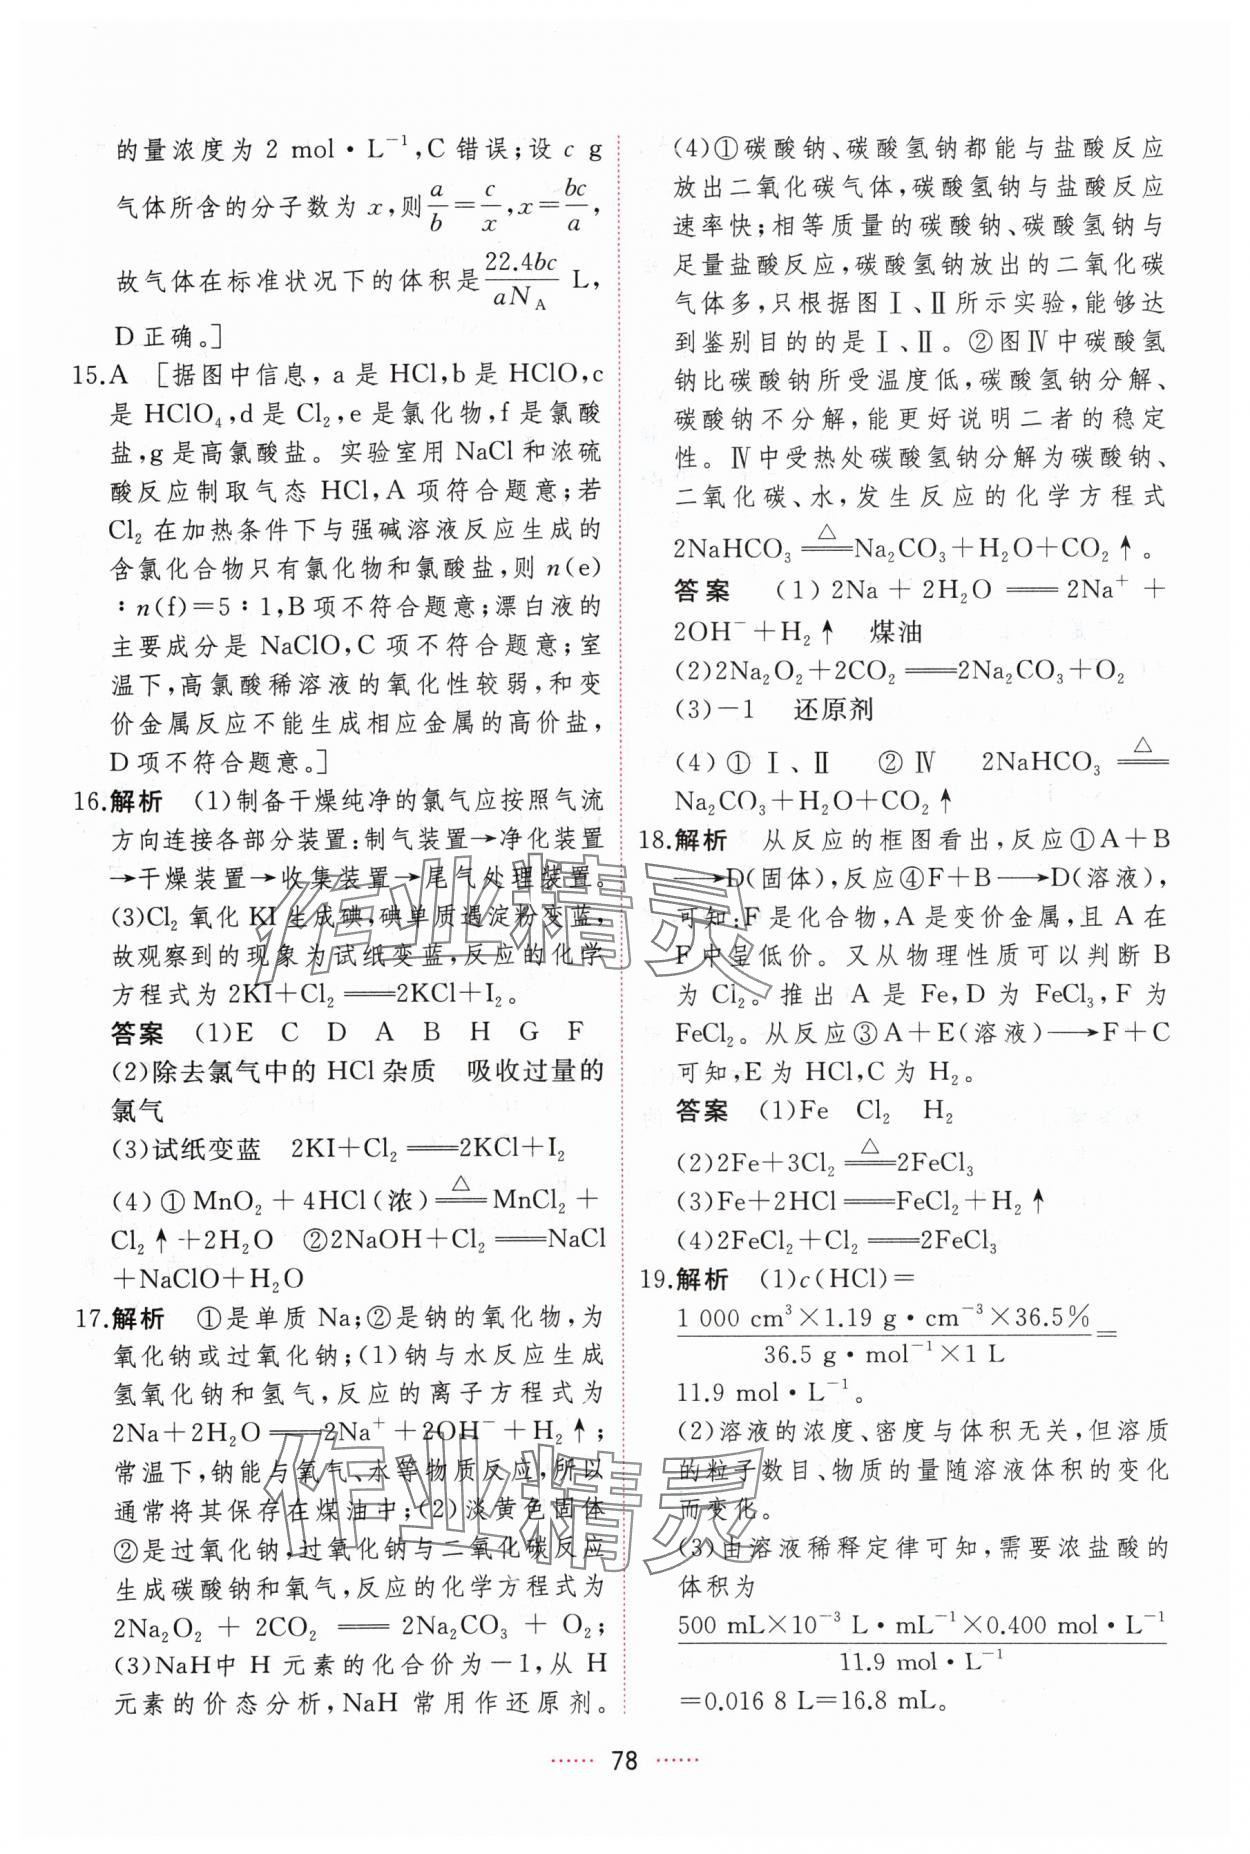 的量浓度为 2 mol·L⁻¹,C 错误;设 c g
气体所含的分子数为 x,则a/b=c/x,x=bc/a,
故气体在标准状况下的体积是22.4bc/aN_A L,
D 正确。]
15.A [据图中信息,a 是 HCl,b 是 HClO,c
是 HClO₄,d 是 Cl₂,e 是氯化物,f 是氯酸
盐,g 是高氯酸盐。实验室用 NaCl 和浓硫
酸反应制取气态 HCl,A 项符合题意;若
Cl₂ 在加热条件下与强碱溶液反应生成的
含氯化合物只有氯化物和氯酸盐,则 n(e)
∶n(f)=5∶1,B 项不符合题意;漂白液的
主要成分是 NaClO,C 项不符合题意;室
温下,高氯酸稀溶液的氧化性较弱,和变
价金属反应不能生成相应金属的高价盐,
D 项不符合题意。]
16.解析 (1)制备干燥纯净的氯气应按照气流
方向连接各部分装置:制气装置→净化装置
→干燥装置→收集装置→尾气处理装置。
(3)Cl₂ 氧化 KI 生成碘,碘单质遇淀粉变蓝,
故观察到的现象为试纸变蓝,反应的化学
方程式为 2KI+Cl₂══2KCl+I₂。
答案 (1)E C D A B H G F
(2)除去氯气中的 HCl 杂质 吸收过量的
氯气
(3)试纸变蓝 2KI+Cl₂══2KCl+I₂
(4)①MnO₂+4HCl(浓)══△MnCl₂+
Cl₂↑+2H₂O ②2NaOH+Cl₂══NaCl
+NaClO+H₂O
17.解析 ①是单质 Na;②是钠的氧化物,为
氧化钠或过氧化钠;(1)钠与水反应生成
氢氧化钠和氢气,反应的离子方程式为
2Na+2H₂O══2Na⁺+2OH⁻+H₂↑;
常温下,钠能与氧气、水等物质反应,所以
通常将其保存在煤油中;(2)淡黄色固体
②是过氧化钠,过氧化钠与二氧化碳反应
生成碳酸钠和氧气,反应的化学方程式为
2Na₂O₂+2CO₂══2Na₂CO₃+O₂;
(3)NaH中 H 元素的化合价为-1,从 H
元素的价态分析,NaH 常用作还原剂。
(4)①碳酸钠、碳酸氢钠都能与盐酸反应
放出二氧化碳气体,碳酸氢钠与盐酸反应
速率快;相等质量的碳酸钠、碳酸氢钠与
足量盐酸反应,碳酸氢钠放出的二氧化碳
气体多,只根据图Ⅰ、Ⅱ所示实验,能够达
到鉴别目的的是Ⅰ、Ⅱ。②图Ⅳ中碳酸氢
钠比碳酸钠所受温度低,碳酸氢钠分解、
碳酸钠不分解,能更好说明二者的稳定
性。Ⅳ中受热处碳酸氢钠分解为碳酸钠、
二氧化碳、水,发生反应的化学方程式
2NaHCO₃══△Na₂CO₃+H₂O+CO₂↑。
答案 (1)2Na+2H₂O══2Na⁺+
2OH⁻+H₂↑ 煤油
(2)2Na₂O₂+2CO₂══2Na₂CO₃+O₂
(3)-1 还原剂
(4)①Ⅰ、Ⅱ ②Ⅳ 2NaHCO₃══△
Na₂CO₃+H₂O+CO₂↑
18.解析 从反应的框图看出,反应①A+B
→D(固体),反应④F+B→D(溶液),
可知:F 是化合物,A 是变价金属,且 A 在
F 中呈低价。又从物理性质可以判断 B
为 Cl₂。推出 A 是 Fe,D 为 FeCl₃,F 为
FeCl₂。从反应③A+E(溶液)→F+C
可知,E 为 HCl,C 为 H₂。
答案 (1)Fe Cl₂ H₂
(2)2Fe+3Cl₂══△2FeCl₃
(3)Fe+2HCl══FeCl₂+H₂↑
(4)2FeCl₂+Cl₂══2FeCl₃
19.解析 (1)c(HCl)=
1 000 cm³×1.19 g·cm⁻³×36.5%/36.5 g·mol⁻¹×1 L=
11.9 mol·L⁻¹。
(2)溶液的浓度、密度与体积无关,但溶质
的粒子数目、物质的量随溶液体积的变化
而变化。
(3)由溶液稀释定律可知,需要浓盐酸的
体积为
500 mL×10⁻³ L·mL⁻¹×0.400 mol·L⁻¹/11.9 mol·L⁻¹
=0.016 8 L=16.8 mL。
······ 78 ······
作业精灵
作业精灵